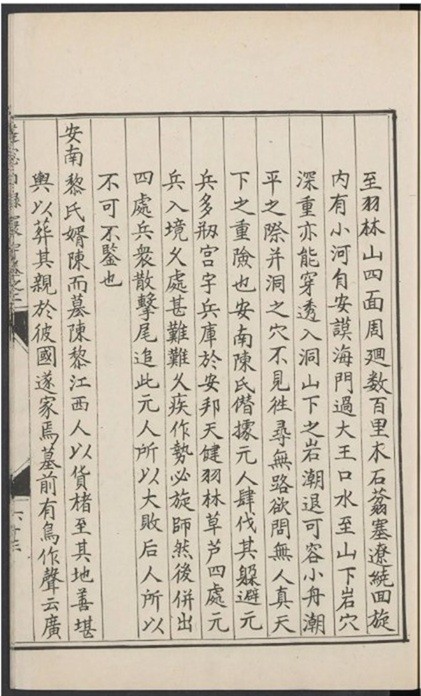 至羽林山四面周廻数百里木石蓊塞遼繞回旋
内有小河自安謨海門過大王口水至山下岩穴
深重亦能穿透入洞山下之岩潮退可容小舟潮
平之際并洞之穴不見徃尋無路欲問無人真天
下之重險也安南陳氏僣據元人肆伐其躱避元
兵多剏宫宇兵庫於安邦天健羽林草芦四處元
兵入境久處甚難難久疾作勢必旋師然後併出
四處兵衆散擊尾追此元人所以大敗后人所以
不可不鍳也
安南黎氏婿陳而墓陳黎江西人以貨楮至其地善堪
輿以葬其親於彼國遂家焉墓前有鳥作聲云廣